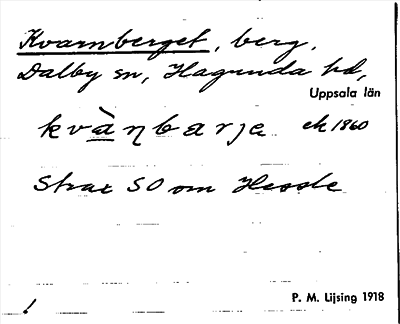 Kvarnberget, berg,
Dalby sn, Hagunda hd,
Uppsala län
kvànbarje ek 1860
Strax SO om Hessle
P. M. Lijsing 1918